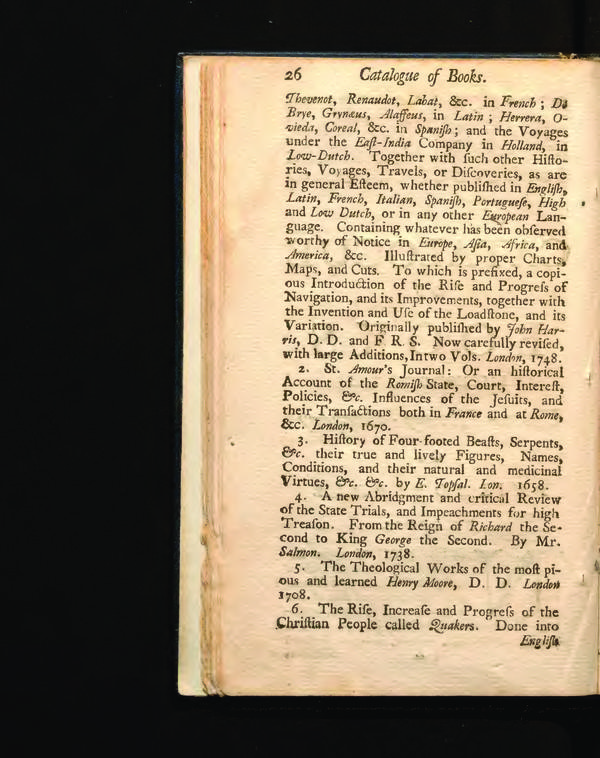 26 Catalogue of Books.
Thevenot, Renaudot, Labat, &c. in French; De
Brye, Grynæus, Alaffeus, in Latin; Herrera, O-
vieda, Coreal, &c. in Spaniſh; and the Voyages
under the Eaſt-India Company in Holland, in
Low-Dutch. Together with ſuch other Hiſto-
ries, Voyages, Travels, or Diſcoveries, as are
in general Eſteem, whether publiſhed in Engliſh,
Latin, French, Italian, Spaniſh, Portugueſe, High
and Low Dutch, or in any other European Lan-
guage. Containing whatever has been obſerved
worthy of Notice in Europe, Aſia, Africa, and
America, &c. Illuſtrated by proper Charts,
Maps, and Cuts. To which is prefixed, a copi-
ous Introduction of the Riſe and Progreſs of
Navigation, and its Improvements, together with
the Invention and Uſe of the Loadſtone, and its
Variation. Originally publiſhed by John Har-
ris, D. D. and F R. S. Now carefully reviſed,
with large Additions, In two Vols. London, 1748.
2. St. Amour's Journal: Or an hiſtorical
Account of the Romiſh State, Court, Intereſt,
Policies, &c. Influences of the Jeſuits, and
their Tranſactions both in France and at Rome,
&c. London, 1670.
3. Hiſtory of Four-footed Beaſts, Serpents,
&c. their true and lively Figures, Names,
Conditions, and their natural and medicinal
Virtues, &c. &c. by E. Topſal. Lon. 1658.
4. A new Abridgment and critical Review
of the State Trials, and Impeachments for high
Treaſon. From the Reign of Richard the Se-
cond to King George the Second. By Mr.
Salmon. London, 1738.
5. The Theological Works of the moſt pi-
ous and learned Henry Moore, D. D. London
1708.
6. The Riſe, Increaſe and Progreſs of the
Chriſtian People called Quakers. Done into
Engliſh